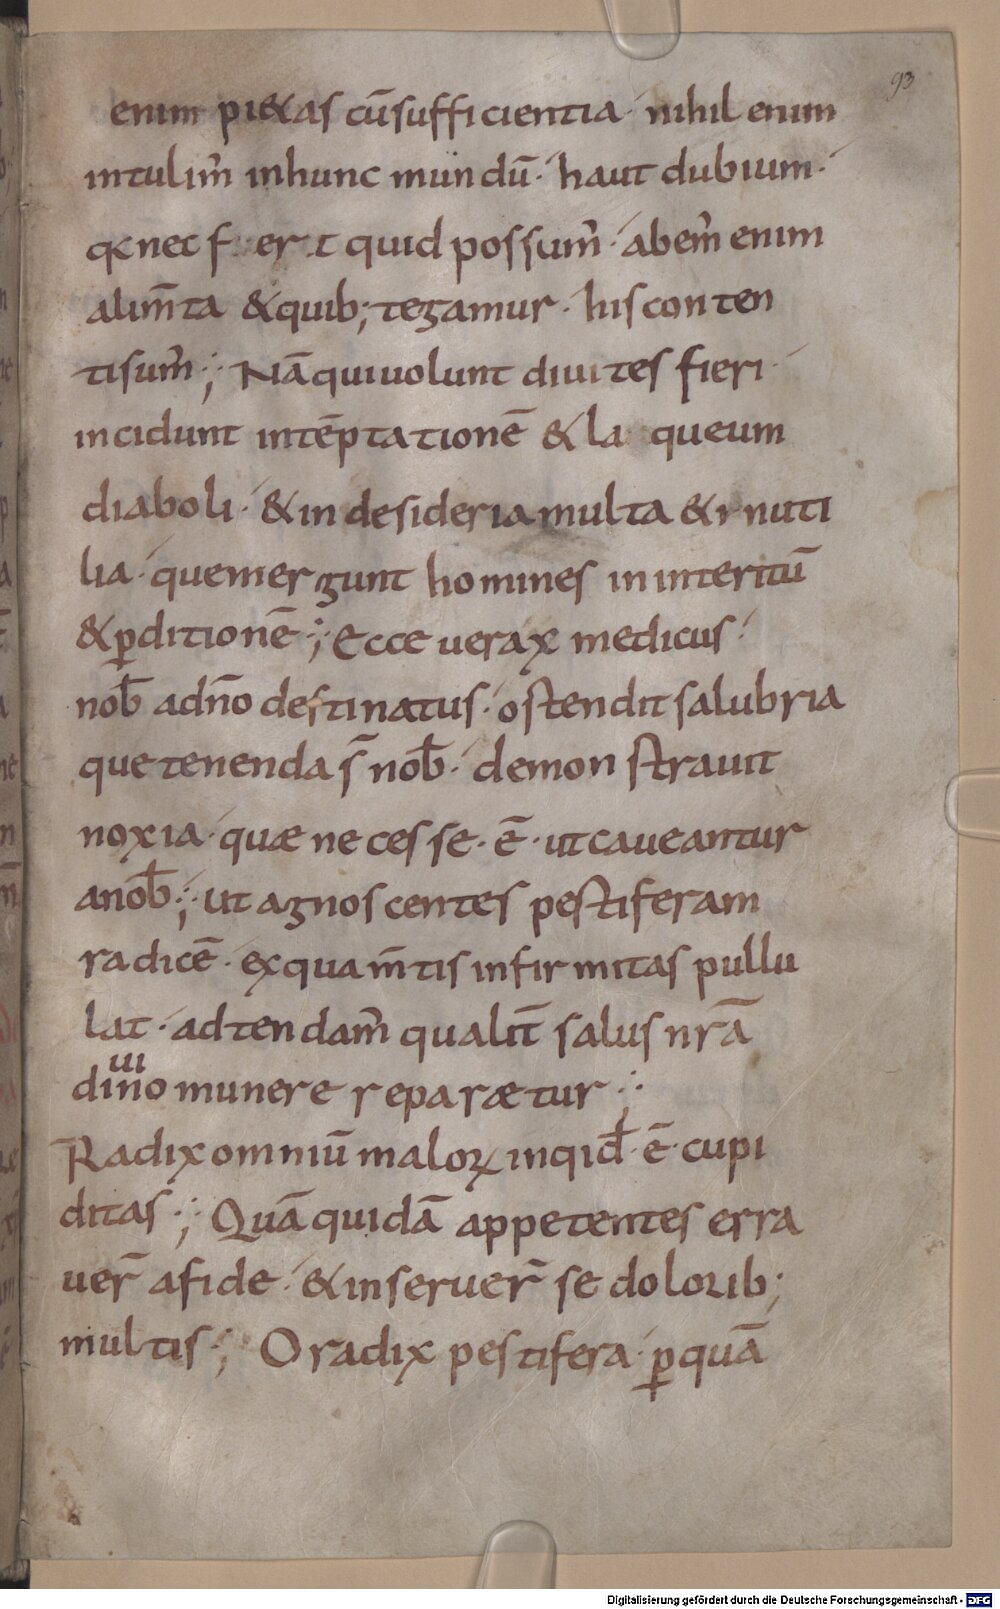 93
enim pi&as cū sufficientia· nihil enim
intulim̄ inhunc mundū· haut dubium·
qꝛ nec f er t quid possum̄· abem̄ enim
alim̄ta &quib; tegamur· his conten
tisum̄·; Nā qui uolunt diuites fieri·
incidunt intēptationē & la queum
diaboli· & in desideria multa & inuti
lia· que mergunt homines in interitū
& ꝑditionē·; Ecce uerax medicus·
nob̄ adn̄o destinatus· ostendit salubria
que tenenda s̄ nob̄· demonstrauit
noxia· quæ necesse· ē· ut caueantur
anob̄·; ut agnoscentes pestiferam
radicē· ex qua m̄tis infirmitas pullu
lat· adtendam̄ qualit̄ salus nr̄ā
ui
dino munere reparætur·:·
Radix omniū maloꝝ inqid̄· ē· cupi
ditas·; Quā quidā appetentes erra
uer̄ afide· & inseruer̄ se dolorib;
multis·; O radix pestifera· ꝑquā
Digitalisierung gefördert durch die Deutsche Forschungsgemeinschaft - DFG